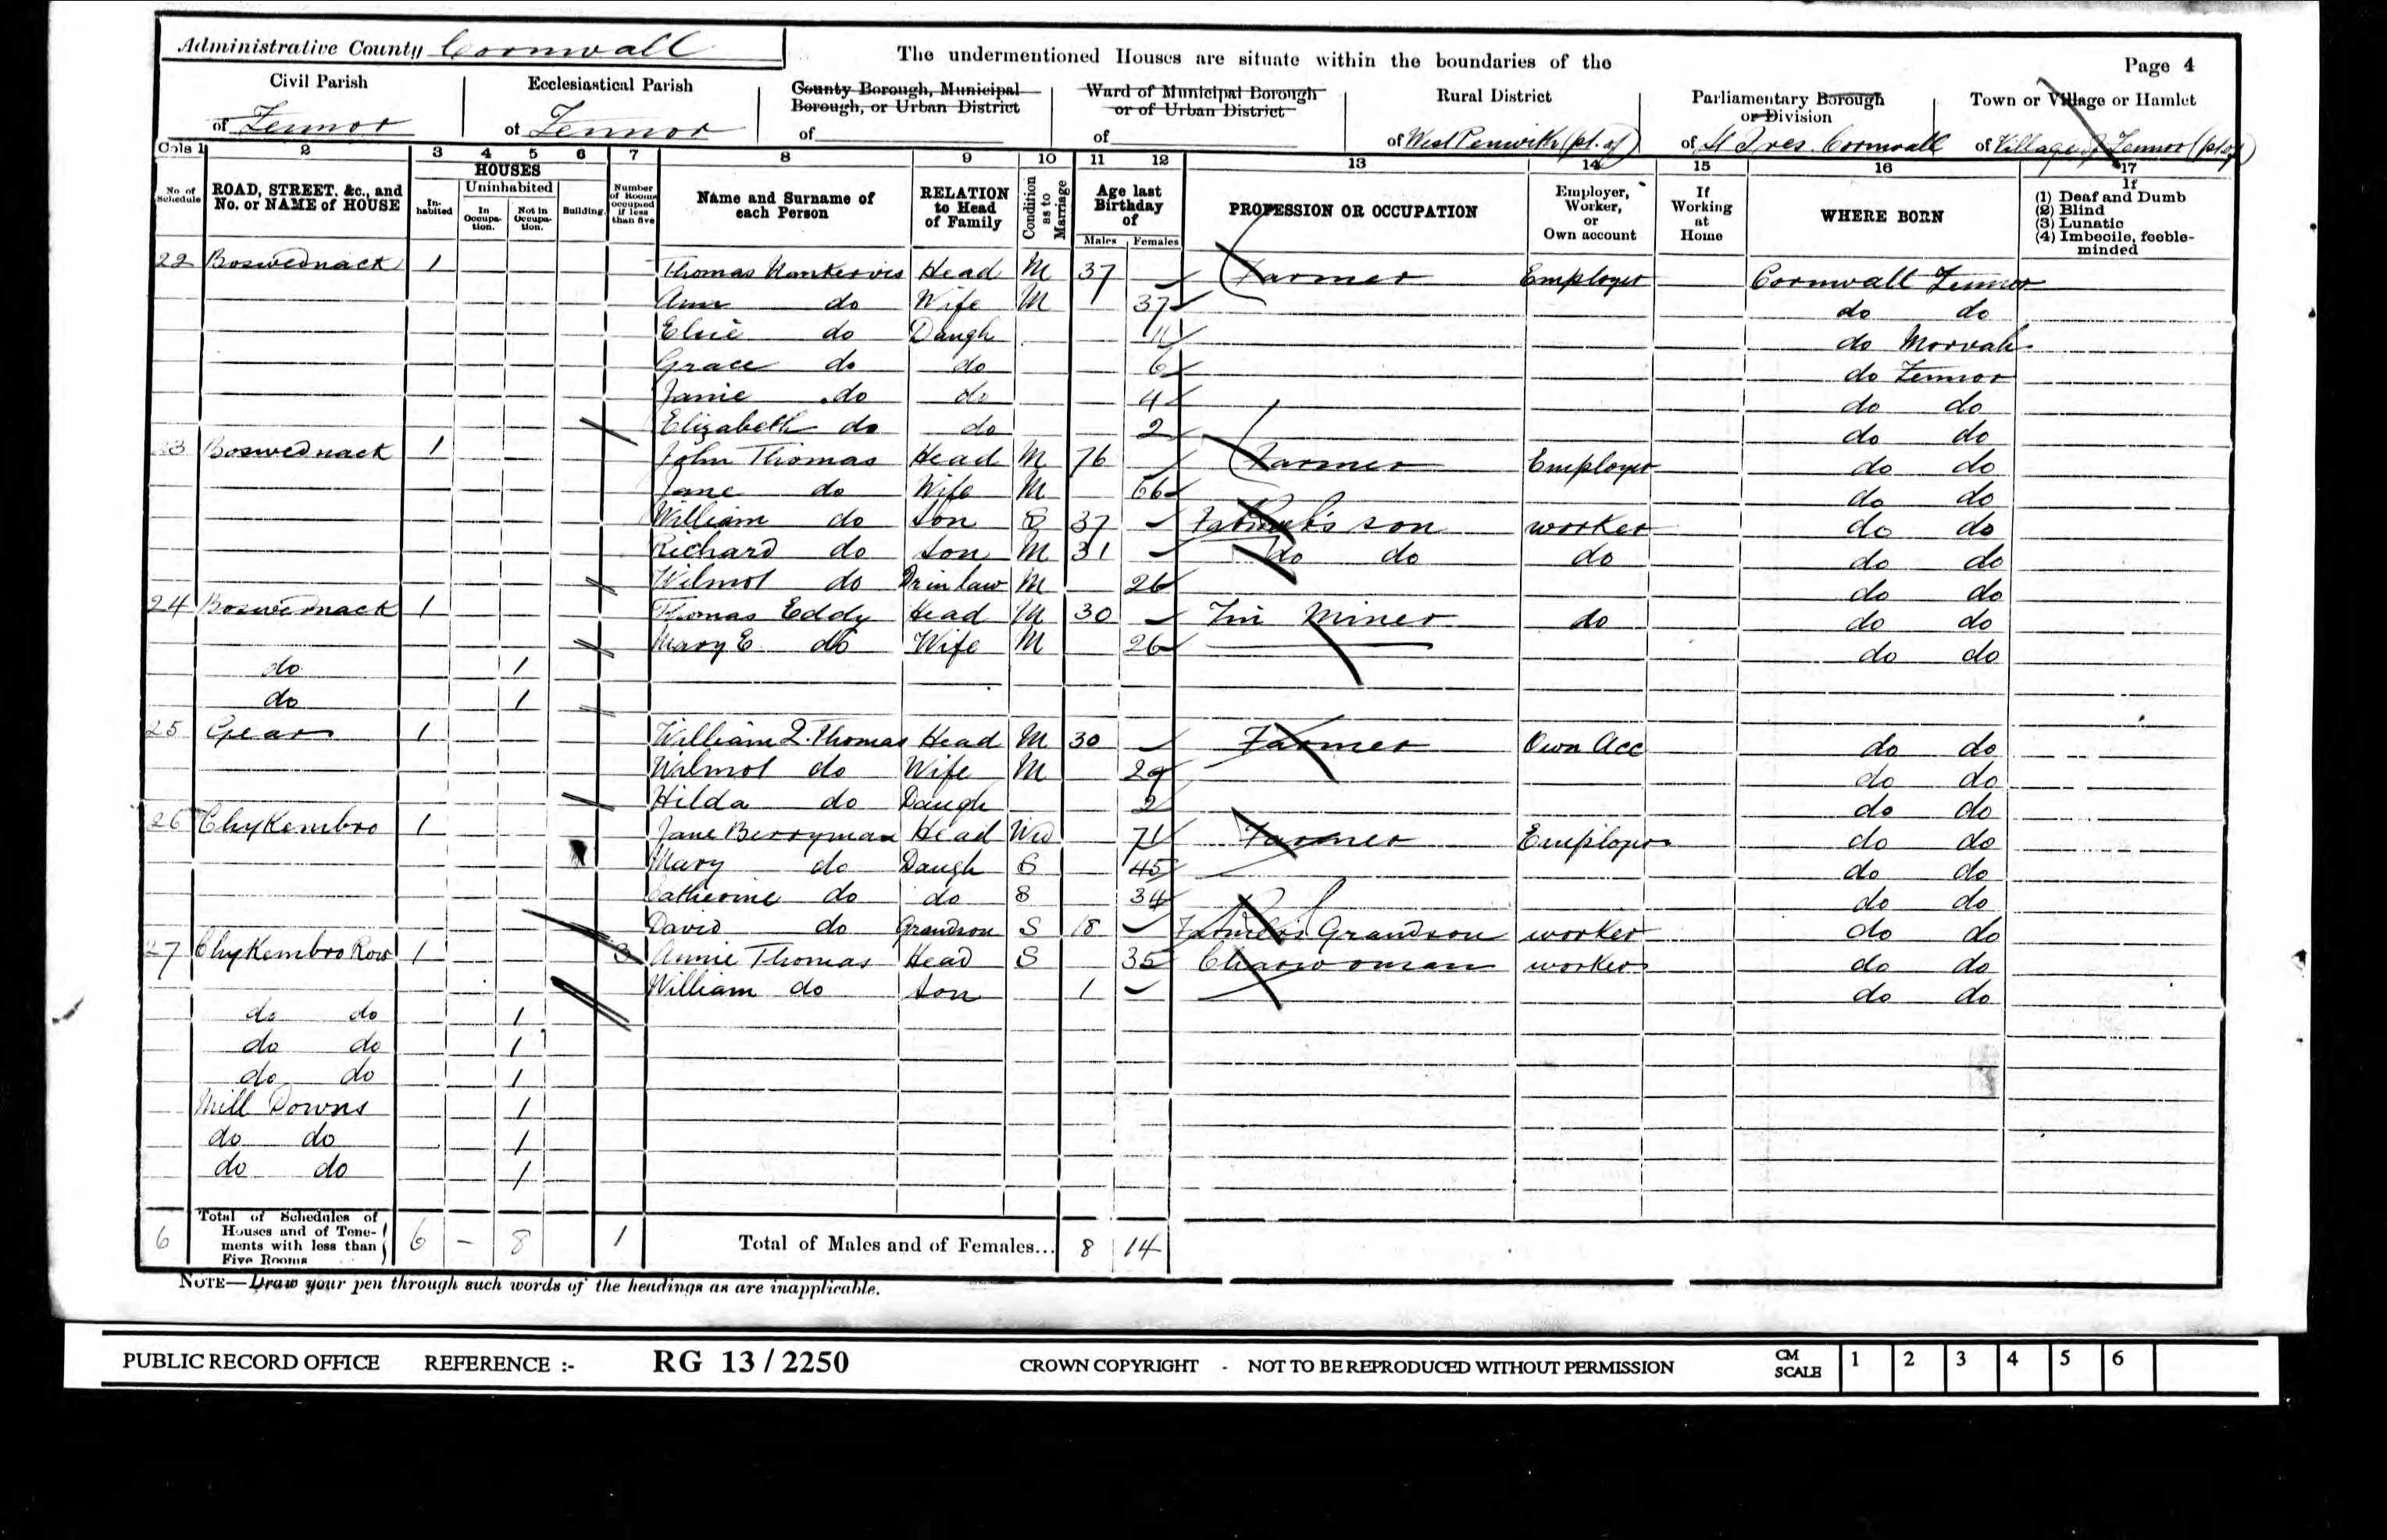 Administrative County Cornwall
The undermentioned Houses are situate within the boundaries of the
Page 4
Civil Parish
of Zennor
Ecclesiastical Parish
of Zennor
County Borough, Municipal
Borough, or Urban District
of
Ward of Municipal Borough
or of Urban District
of
Rural District
of West Penwith (pt. of)
Parliamentary Borough
or Division
of St Ives Cornwall
Town or Village or Hamlet
of Village of Zennor (pt of)
Cols 1 2 3 4 5 6 7 8 9 10 11 12 13 14 15 16 17
No. of Schedule
ROAD, STREET, &c., and No. or NAME of HOUSE
HOUSES
In-habited
Uninhabited
In Occupa-tion.
Not in Occupa-tion.
Building.
Number of Rooms occupied if less than five
Name and Surname of each Person
RELATION to Head of Family
Condition as to Marriage
Age last Birthday of
Males Females
PROFESSION OR OCCUPATION
Employer, Worker, or Own account
If Working at Home
WHERE BORN
If
(1) Deaf and Dumb
(2) Blind
(3) Lunatic
(4) Imbecile, feeble-minded
22 Boswednack 1 Thomas Nankervis Head M 37 Farmer Employer Cornwall Zennor
Ann do Wife M 37 do do
Elsie do Daugh 11 do Morvah
Grace do do 6 do Zennor
Janie do do 4 do do
Elizabeth do do 2 do do
23 Boswednack 1 John Thomas Head M 76 Farmer Employer do do
Jane do Wife M 66 do do
William do Son S 37 Farmer's son worker do do
Richard do Son M 31 do do do do do
Wilmot do Dr in law M 26 do do
24 Boswednack 1 Thomas Eddy Head M 30 Tin Miner do do do
Mary E. do Wife M 26 do do
do 1
do 1
25 Gear 1 William Q. Thomas Head M 30 Farmer Own Acc do do
Wilmot do Wife M 29 do do
Hilda do Daugh 2 do do
26 Chykembro 1 Jane Berryman Head Wid 71 Farmer Employer do do
Mary do Daugh S 45 do do
Catherine do do S 34 do do
David do Grandson S 18 Farmer's Grandson worker do do
27 Chykembro Row 1 3 Annie Thomas Head S 35 Charwoman worker do do
William do Son 1 do do
do do 1
do do 1
do do 1
Mill Downs 1
do do 1
do do 1
6 Total of Schedules of Houses and of Tene-ments with less than Five Rooms 6 – 8 1 Total of Males and of Females... 8 14
NOTE—Draw your pen through such words of the headings as are inapplicable.
PUBLIC RECORD OFFICE REFERENCE :- RG 13 / 2250 CROWN COPYRIGHT - NOT TO BE REPRODUCED WITHOUT PERMISSION CM SCALE 1 2 3 4 5 6